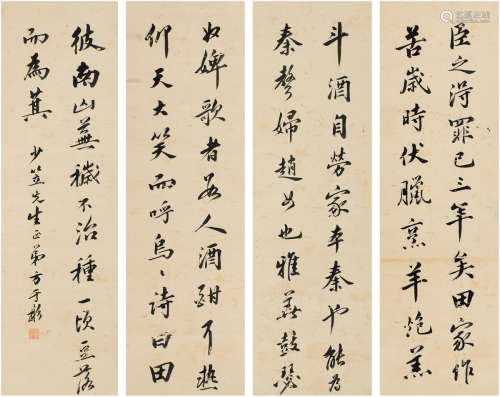 臣之得罪已三年矣田家作
苦歲時伏臘烹羊炮羔
斗酒自勞家本秦也能為
秦聲婦趙女也雅善鼓瑟
奴婢歌者人酒酣耳熱
仰天大笑而呼烏〻詩曰田
彼南山蕪穢不治種一頃豆落
而為萁 少笠先生正 弟方于